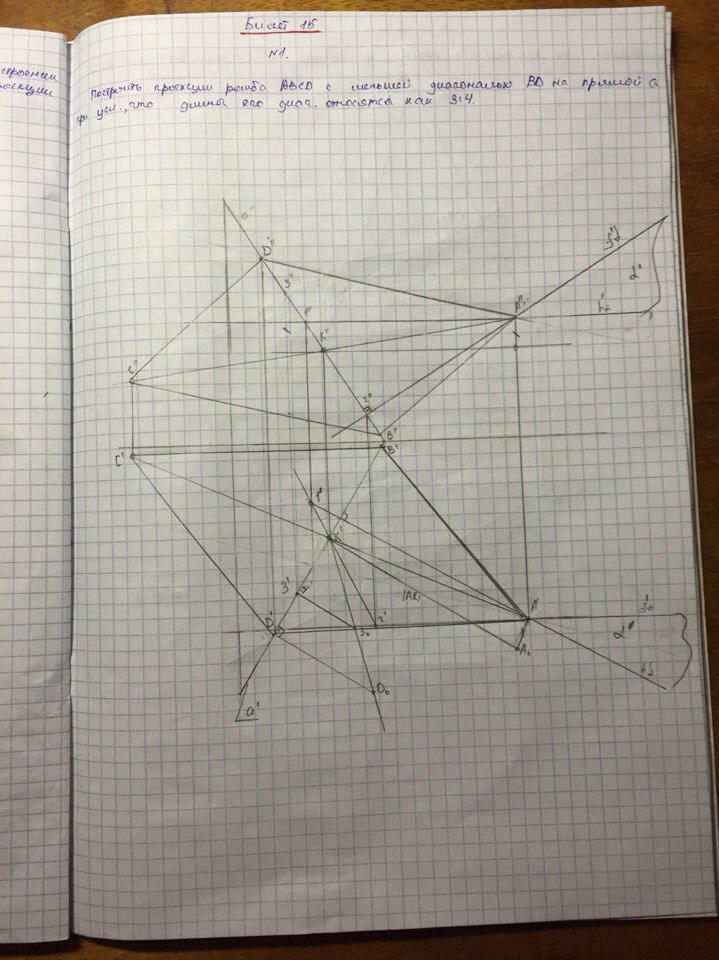 Билет 15
№1.
Построить проекции ромба ABCD с меньшей диагональю BD на прямой a
при усл., что длины его диаг. относятся как 3:4.
a"
D"
3"
1"
K"
A"
f"
α"
h"
C"
2"
B"
B'
C'
1'
K'
3'
|AK|
D'
3₀
2'
A'
A₀
D₀
a'
α'